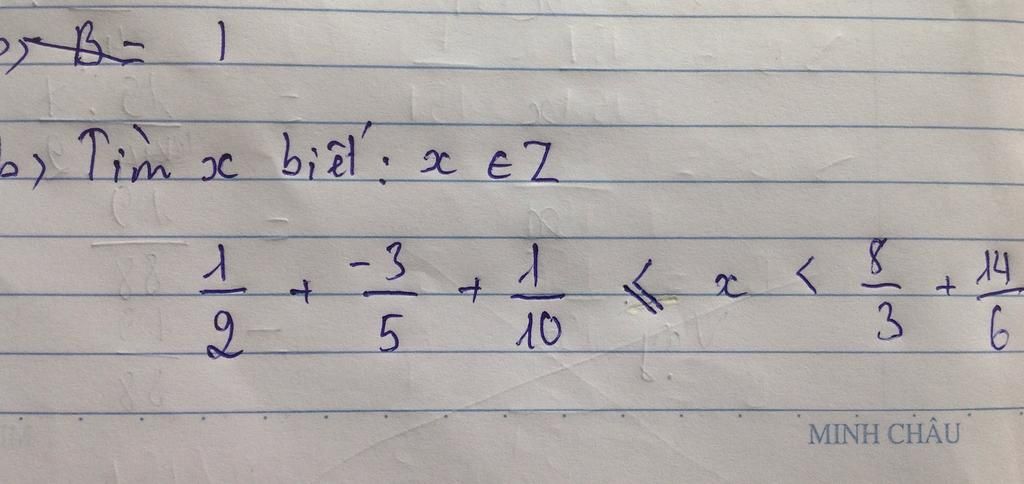 b) B = 1
b) Tìm x biết: x ∈ Z
1/2 + -3/5 + 1/10 ≤ x < 8/3 + 14/6
MINH CHÂU